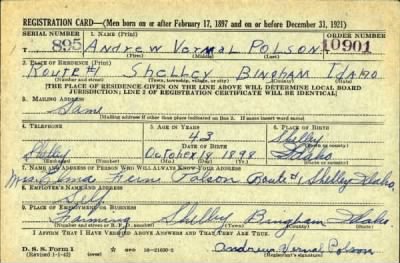 REGISTRATION CARD—(Men born on or after February 17, 1897 and on or before December 31, 1921)
SERIAL NUMBER 1. NAME (Print) ORDER NUMBER
T 895 Andrew Vernal Polson T 10901
(First) (Middle) (Last)
2. PLACE OF RESIDENCE (Print)
Route #1 Shelley Bingham Idaho
(Number and street) (Town, township, village, or city) (County) (State)
[THE PLACE OF RESIDENCE GIVEN ON THE LINE ABOVE WILL DETERMINE LOCAL BOARD
JURISDICTION; LINE 2 OF REGISTRATION CERTIFICATE WILL BE IDENTICAL]
3. MAILING ADDRESS
Same
[Mailing address if other than place indicated on line 2. If same insert word same]
4. TELEPHONE 5. AGE IN YEARS 6. PLACE OF BIRTH
43 Shelley
DATE OF BIRTH (Town or county)
Shelley October 19 1898 Idaho
(Mo.) (Day) (Yr.) (State or country)
7. NAME AND ADDRESS OF PERSON WHO WILL ALWAYS KNOW YOUR ADDRESS
Polson Route #1 Shelley Idaho.
8. EMPLOYER'S NAME AND ADDRESS
Self
9. PLACE OF EMPLOYMENT OR BUSINESS
Farming Shelley Bingham Idaho.
(Number and street or R. F. D. number) (Town) (County) (State)
I AFFIRM THAT I HAVE VERIFIED ABOVE ANSWERS AND THAT THEY ARE TRUE.
D. S. S. Form 1
(Revised 1-1-42) GPO 16—21630-2
Andrew Vernal Polson
(Registrant's signature)